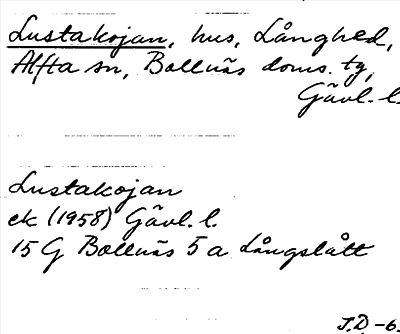 Lustakojan, hus, Långhed,
Alfta sn, Bollnäs doms. tg,
Gävl. l.
Lustakojan
ek (1958) Gävl. l.
15 G Bollnäs 5 a Långslått
J.D. -6